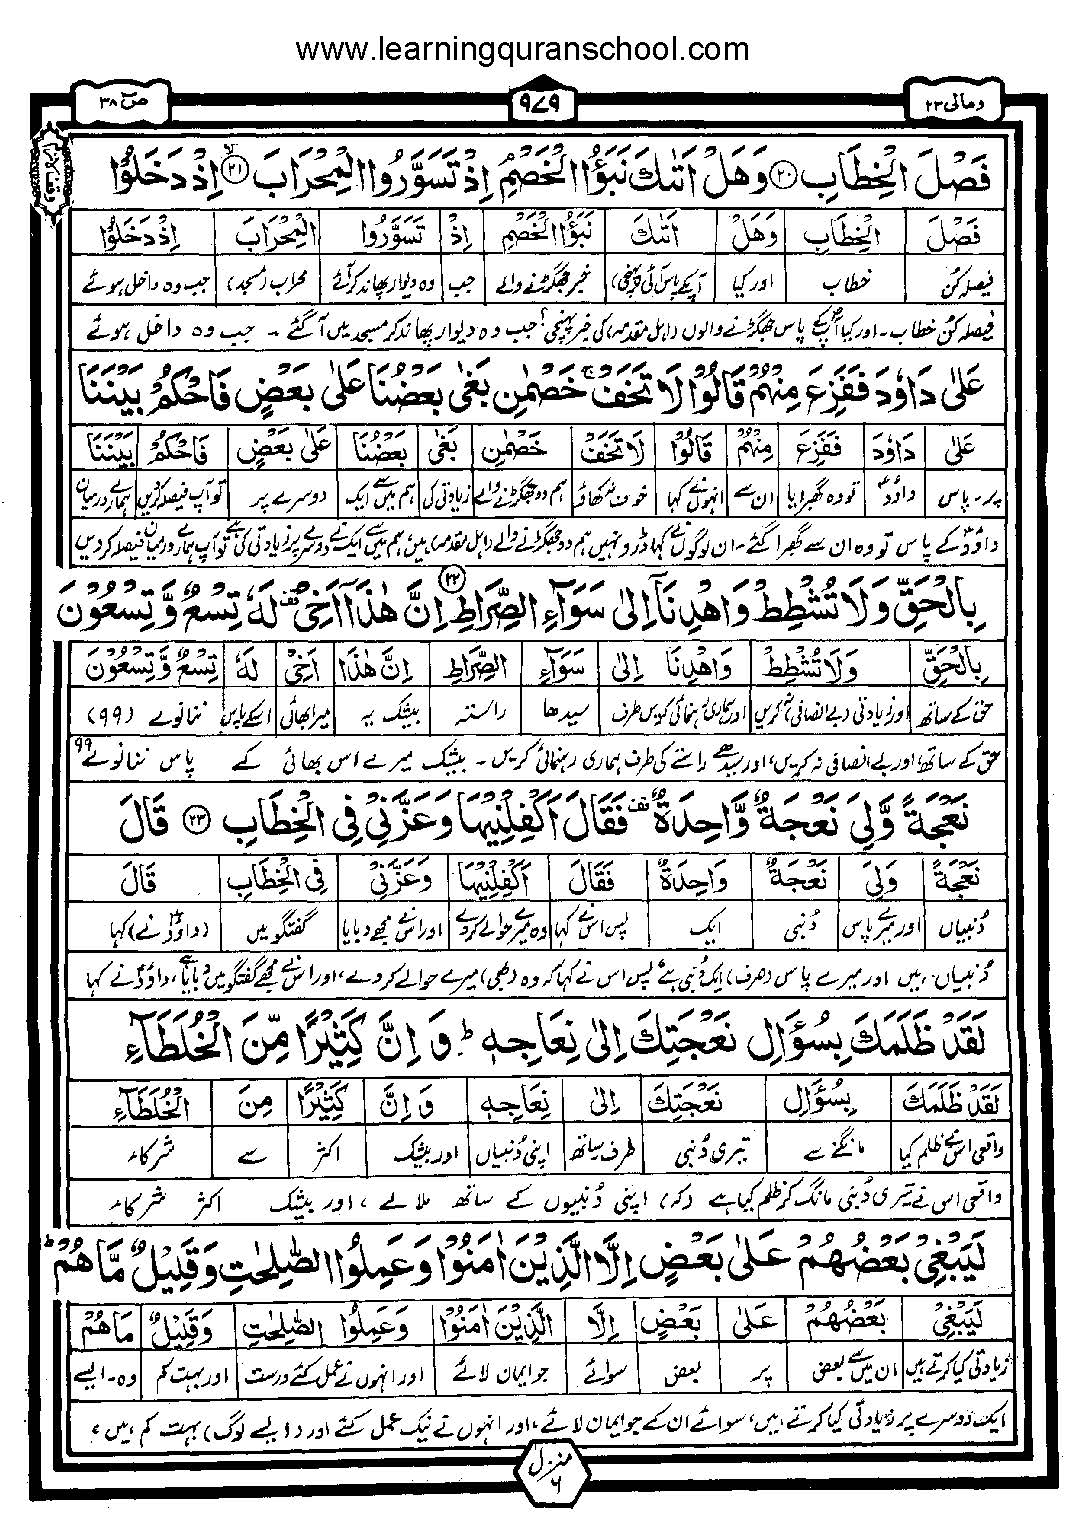 www.learningquranschool.com
ومالی ۲۳
۹۷۹
ص ۳۸
فَصْلَ الْخِطَابِ ۲۰ وَهَلْ اَتٰىكَ نَبَؤُا الْخَصْمِ اِذْ تَسَوَّرُوا الْمِحْرَابَ ۲۱ اِذْ دَخَلُوْا
فَصْلَ الْخِطَابِ وَهَلْ اَتٰىكَ نَبَؤُا الْخَصْمِ اِذْ تَسَوَّرُوا الْمِحْرَابَ اِذْ دَخَلُوْا
فیصلہ کن خطاب اور کیا آپکے پاس آئی (پہنچی) خبر جھگڑنے والے جب وہ دیوار پھاند کر آئے محراب (مسجد) جب وہ داخل ہوئے
فیصلہ کن خطاب۔ اور کیا آپ کے پاس جھگڑنے والوں (اہل مقدمہ) کی خبر پہنچی؟ جب وہ دیوار پھاند کر مسجد میں آ گئے ۔ جب وہ داخل ہوئے
عَلٰى دَاوٗدَ فَفَزِعَ مِنْهُمْ قَالُوْا لَا تَخَفْ ۚ خَصْمٰنِ بَغٰى بَعْضُنَا عَلٰى بَعْضٍ فَاحْكُمْ بَيْنَنَا
عَلٰى دَاوٗدَ فَفَزِعَ مِنْهُمْ قَالُوْا لَا تَخَفْ خَصْمٰنِ بَغٰى بَعْضُنَا عَلٰى بَعْضٍ فَاحْكُمْ بَيْنَنَا
پر۔پاس داؤدؑ تو وہ گھبرایا ان سے انہوں نے کہا خوف نہ کھاؤ ہم دو جھگڑنے والے زیادتی کی ہم میں سے ایک دوسرے پر تو آپ فیصلہ کردیں ہمارے درمیان
داؤدؑ کے پاس تو وہ ان سے گھبرا گئے۔ ان لوگوں نے کہا ڈرو نہیں ہم دو جھگڑنے والے (اہل مقدمہ) ہیں ہم میں سے ایک نے دوسرے پر زیادتی کی ہے تو آپ ہمارے درمیان فیصلہ کردیں
بِالْحَقِّ وَلَا تُشْطِطْ وَاهْدِنَآ اِلٰى سَوَآءِ الصِّرَاطِ ۲۲ اِنَّ هٰذَآ اَخِيْ لَهٗ تِسْعٌ وَّتِسْعُوْنَ
بِالْحَقِّ وَلَا تُشْطِطْ وَاهْدِنَا اِلٰى سَوَآءِ الصِّرَاطِ اِنَّ هٰذَا اَخِيْ لَهٗ تِسْعٌ وَّتِسْعُوْنَ
حق کے ساتھ اور زیادتی (بے انصافی) نہ کریں اور ہماری رہنمائی کریں طرف سیدھا راستہ بیشک یہ میرا بھائی اسکے پاس ننانوے (۹۹)
حق کے ساتھ، اور بے انصافی نہ کریں، اور سیدھے راستے کی طرف ہماری رہنمائی کریں ۔ بیشک میرے اس بھائی کے پاس ننانوے ۹۹
نَعْجَةً وَّلِيَ نَعْجَةٌ وَّاحِدَةٌ فَقَالَ اَكْفِلْنِيْهَا وَعَزَّنِيْ فِي الْخِطَابِ ۲۳ قَالَ
نَعْجَةً وَلِيَ نَعْجَةٌ وَاحِدَةٌ فَقَالَ اَكْفِلْنِيْهَا وَعَزَّنِيْ فِي الْخِطَابِ قَالَ
دنبیاں اور میرے پاس دنبی ایک پس اس نے کہا وہ میرے حوالے کردے اور اس نے مجھے دبایا گفتگو میں (داؤدؑ نے) کہا
دنبیاں ہیں اور میرے پاس (صرف) ایک دنبی ہے پس اس نے کہا کہ وہ (بھی) میرے حوالے کر دے، اور اس نے مجھے گفتگو میں دبایا ہے، داؤدؑ نے کہا
لَقَدْ ظَلَمَكَ بِسُؤَالِ نَعْجَتِكَ اِلٰى نِعَاجِهٖ ؕ وَاِنَّ كَثِيْرًا مِّنَ الْخُلَطَآءِ
لَقَدْ ظَلَمَكَ بِسُؤَالِ نَعْجَتِكَ اِلٰى نِعَاجِهٖ وَاِنَّ كَثِيْرًا مِنَ الْخُلَطَآءِ
واقعی اس نے ظلم کیا مانگنے سے تیری دنبی طرف۔ساتھ اپنی دنبیاں اور بیشک اکثر سے شرکاء
واقعی اس نے تیری دنبی مانگ کر ظلم کیا ہے (کہ) اپنی دنبیوں کے ساتھ ملا لے ، اور بیشک اکثر شرکاء
لَيَبْغِيْ بَعْضُهُمْ عَلٰى بَعْضٍ اِلَّا الَّذِيْنَ اٰمَنُوْا وَعَمِلُوا الصّٰلِحٰتِ وَقَلِيْلٌ مَّا هُمْ ؕ
لَيَبْغِيْ بَعْضُهُمْ عَلٰى بَعْضٍ اِلَّا الَّذِيْنَ اٰمَنُوْا وَعَمِلُوا الصّٰلِحٰتِ وَقَلِيْلٌ مَا هُمْ
زیادتی کیا کرتے ہیں ان میں سے بعض پر بعض سوائے جو ایمان لائے اور انہوں نے عمل کئے درست اور بہت کم وہ۔ایسے
ایک دوسرے پر زیادتی کیا کرتے ہیں، سوائے ان کے جو ایمان لائے، اور انہوں نے نیک عمل کئے اور (ایسے لوگ) بہت کم ہیں،
منزل ۶